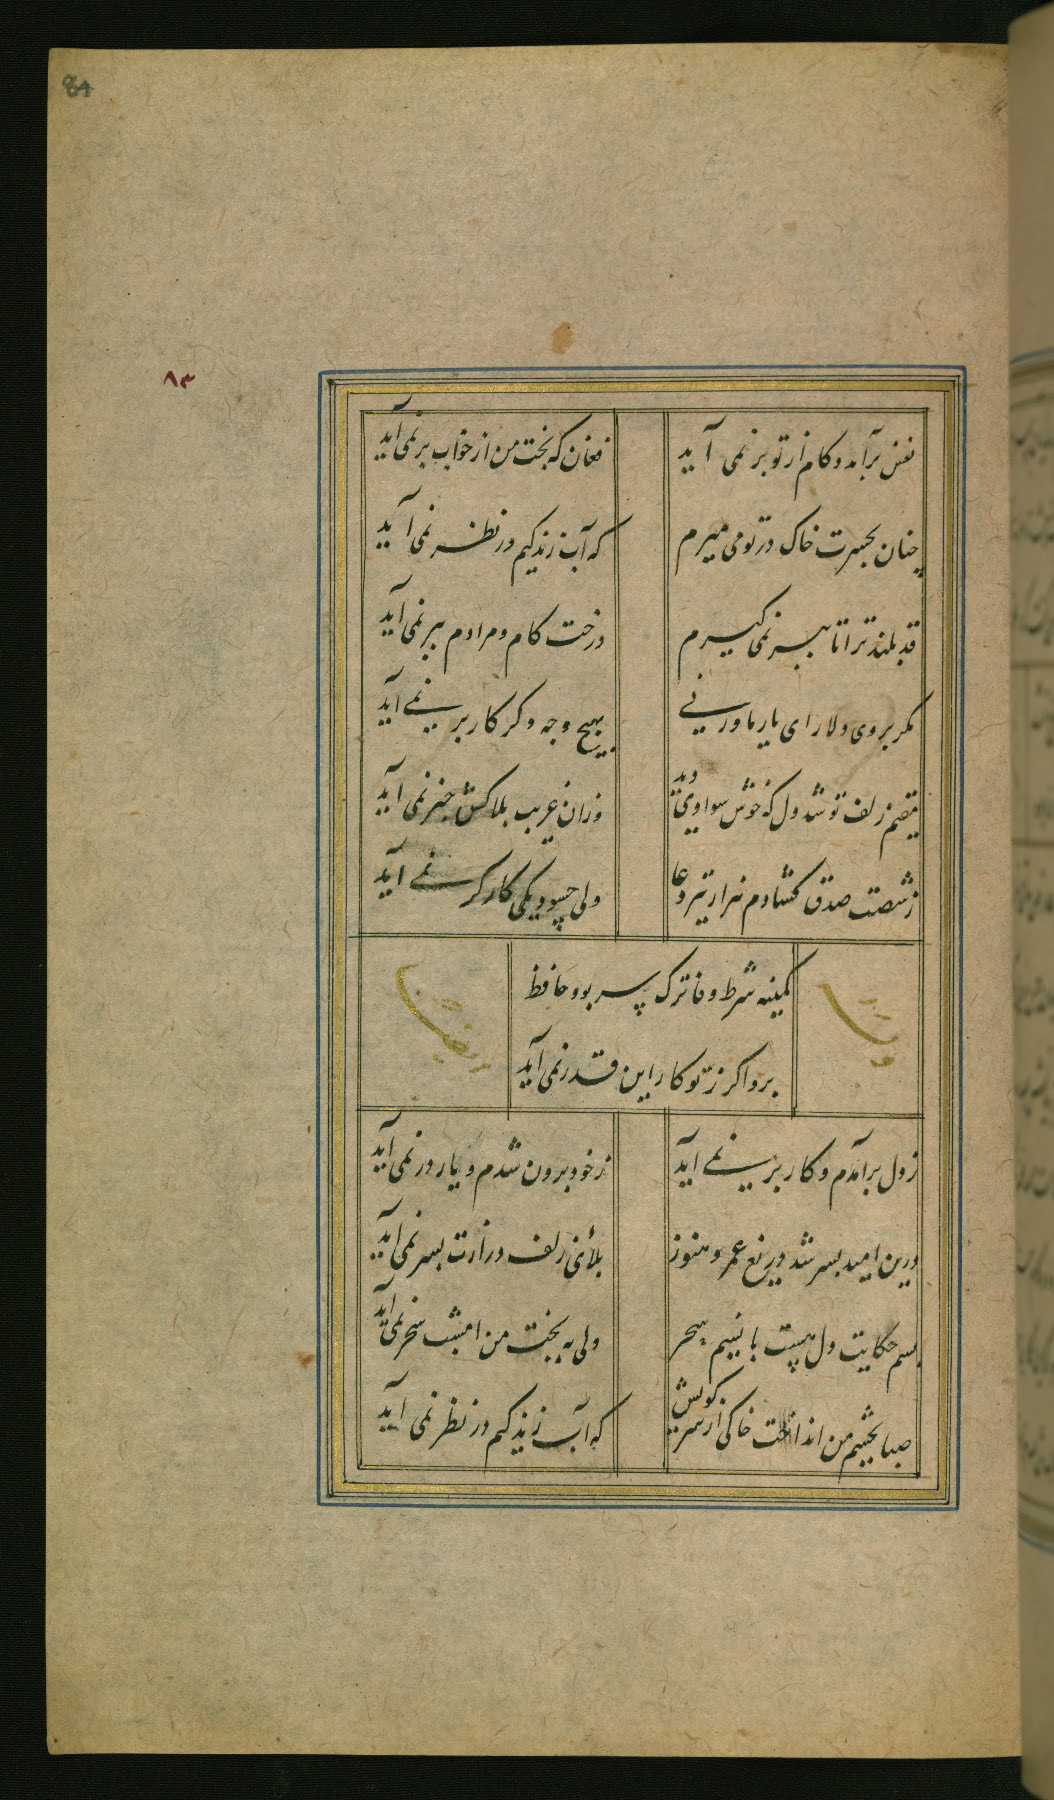 84
۸۳
نفس برآمد و کام از تو بر نمی آید
فغان که بخت من از خواب بر نمی آید
چنان بحسرت خاک در تو می میرم
که آب زندکیم در نظر نمی آید
قد بلند ترا تا ببر نمی کیرم
درخت کام و مرادم ببر نمی آید
مکر بروی دلارای یار ما ورنی
بهیچ وجه دکر کار بر نمی آید
مقیم زلف تو شد دل که خوش سوادی دید
وزان غریب بلاکش خبر نمی آید
ز شصت صدق کشادم هزار تیر دعا
ولی چسود یکی کارکر نمی آید
کمینه شرط وفا ترک سر بود حافظ
برو اکر ز تو کار این قدر نمی آید
ز دل برآمدم و کار بر نمی آید
ز خود برون شدم و یار در نمی آید
درین امید بسر شد دریغ عمر و هنوز
بلای زلف درازت بسر نمی آید
بسم حکایت دل هست با نسیم سحر
ولی به بخت من امشب سحر نمی آید
صبا بچشم من انداخت خاکی از سر کویش
که آب زندکیم در نظر نمی آید